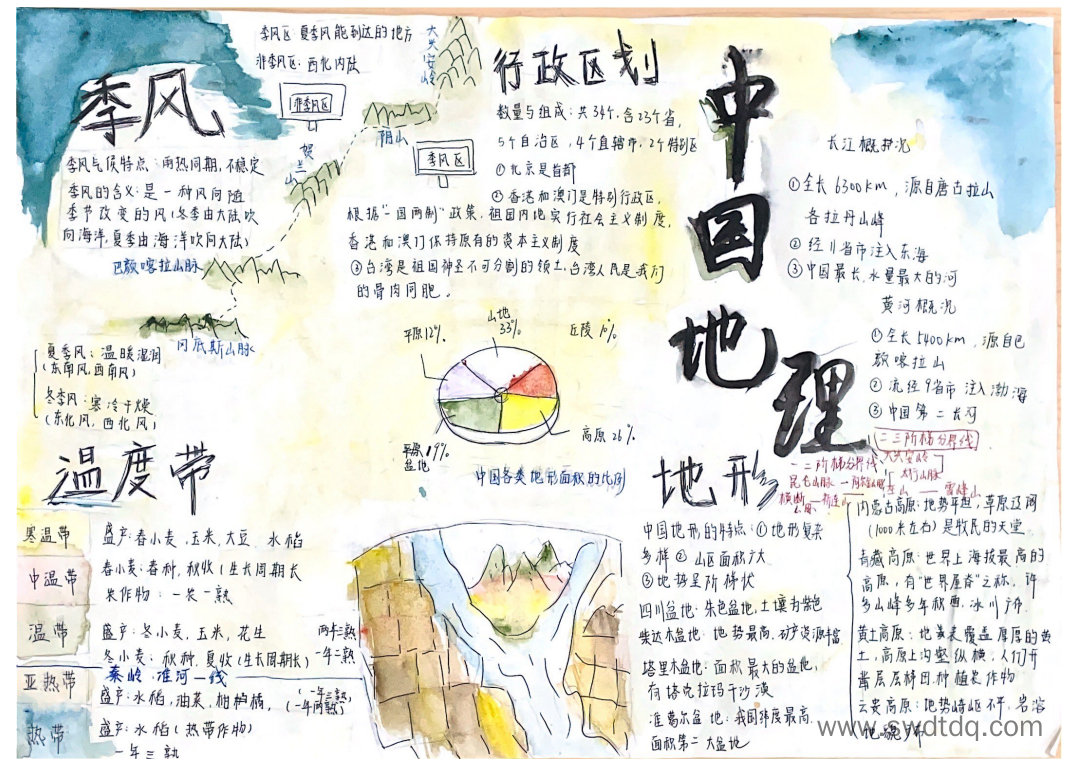 季风区：夏季风能到达的地方
非季风区：西北内陆
大兴安岭
季风
非季风区
阴山
贺兰山
季风区
季风气候特点：雨热同期，不稳定
季风的含义：是一种风向随
季节改变的风(冬季由大陆吹
向海洋，夏季由海洋吹向大陆)
巴颜喀拉山脉
冈底斯山脉
夏季风：温暖湿润
(东南风，西南风)
冬季风：寒冷干燥
(东北风，西北风)
行政区划
数量与组成：共34个，含23个省，
5个自治区，4个直辖市，2个特别区
①北京是首都
②香港和澳门是特别行政区，
根据"一国两制"政策，祖国内地实行社会主义制度，
香港和澳门保持原有的资本主义制度
③台湾是祖国神圣不可分割的领土，台湾人民是我们
的骨肉同胞。
中国地理
长江概况
①全长6300km，源自唐古拉山
各拉丹山峰
②经11省市注入东海
③中国最长，水量最大的河
黄河概况
①全长5400km，源自巴
颜喀拉山
②流经9省市注入渤海
③中国第二长河
平原12%
山地33%
丘陵10%
高原26%
盆地19%
中国各类地形面积的比例
温度带
寒温带
盛产：春小麦，玉米，大豆，水稻
中温带
春小麦：春种，秋收(生长周期长
农作物：一农一熟
温带
盛产：冬小麦，玉米，花生
两年三熟
冬小麦：秋种，夏收(生长周期长)
一年二熟
秦岭－淮河一线
亚热带
盛产：水稻，油菜，柑桔橘，
(一年三熟)
(一年两熟)
热带
盛产：水稻(热带作物)
一年三熟
地形
二三阶梯分界线
大兴安岭
太行山脉
巫山 — 雪峰山
一二阶梯分界线
昆仑山脉 — 阿尔金山脉
祁连山
横断山脉
中国地形的特点：①地形复杂
多样 ②山区面积广大
③地势呈阶梯状
四川盆地：朱色盆地，土壤为紫色
柴达木盆地：地势最高，矿产资源丰富
塔里木盆地：面积最大的盆地，
有塔克拉玛干沙漠
准葛尔盆地：我国纬度最高，
面积第二大盆地
内蒙古高原：地势平坦，草原辽阔
(1000米左右)是牧民的天堂
青藏高原：世界上海拔最高的
高原，有"世界屋脊"之称，许
多山峰多年积雪，冰川广布
黄土高原：地表覆盖厚厚的黄
土，高原上沟壑纵横，人们开
凿层层梯田，种植农作物
云贵高原：地势崎岖不平，岩溶
www.swdtdq.com